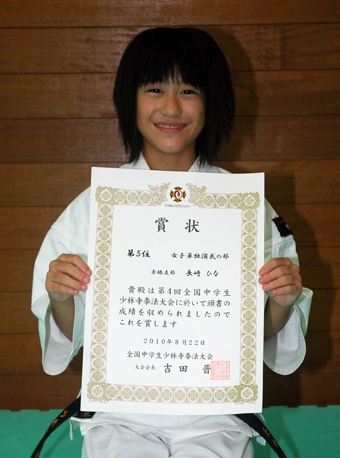 賞状
第5位 女子単独演武の部
赤穂支部 長崎 ひな
貴殿は第4回全国中学生
少林寺拳法大会に於いて頭書の
成績を収められましたので
これを賞します
2010年8月22日
全国中学生少林寺拳法大会
大会会長 吉田 晋